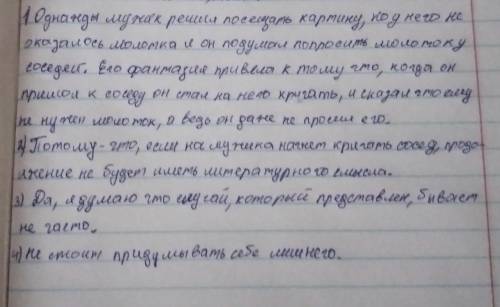 1. Однажды мужик решил посещать картину, но у него не
оказалось молотка и он подумал попросить молоток у
соседей. Его фантазия привела к тому что, когда он
пришол к соседу он стал на него кричать, и сказал что ему
не нужен молоток, а ведь он даже не просил его.
2) Потому-что, если на мужика начнет кричать сосед, продо-
лжение не будет иметь литературного смысла.
3) Да, я думаю что случай, который представлен, бывает
не часто.
4) Не стоит придумывать себе лишнего.